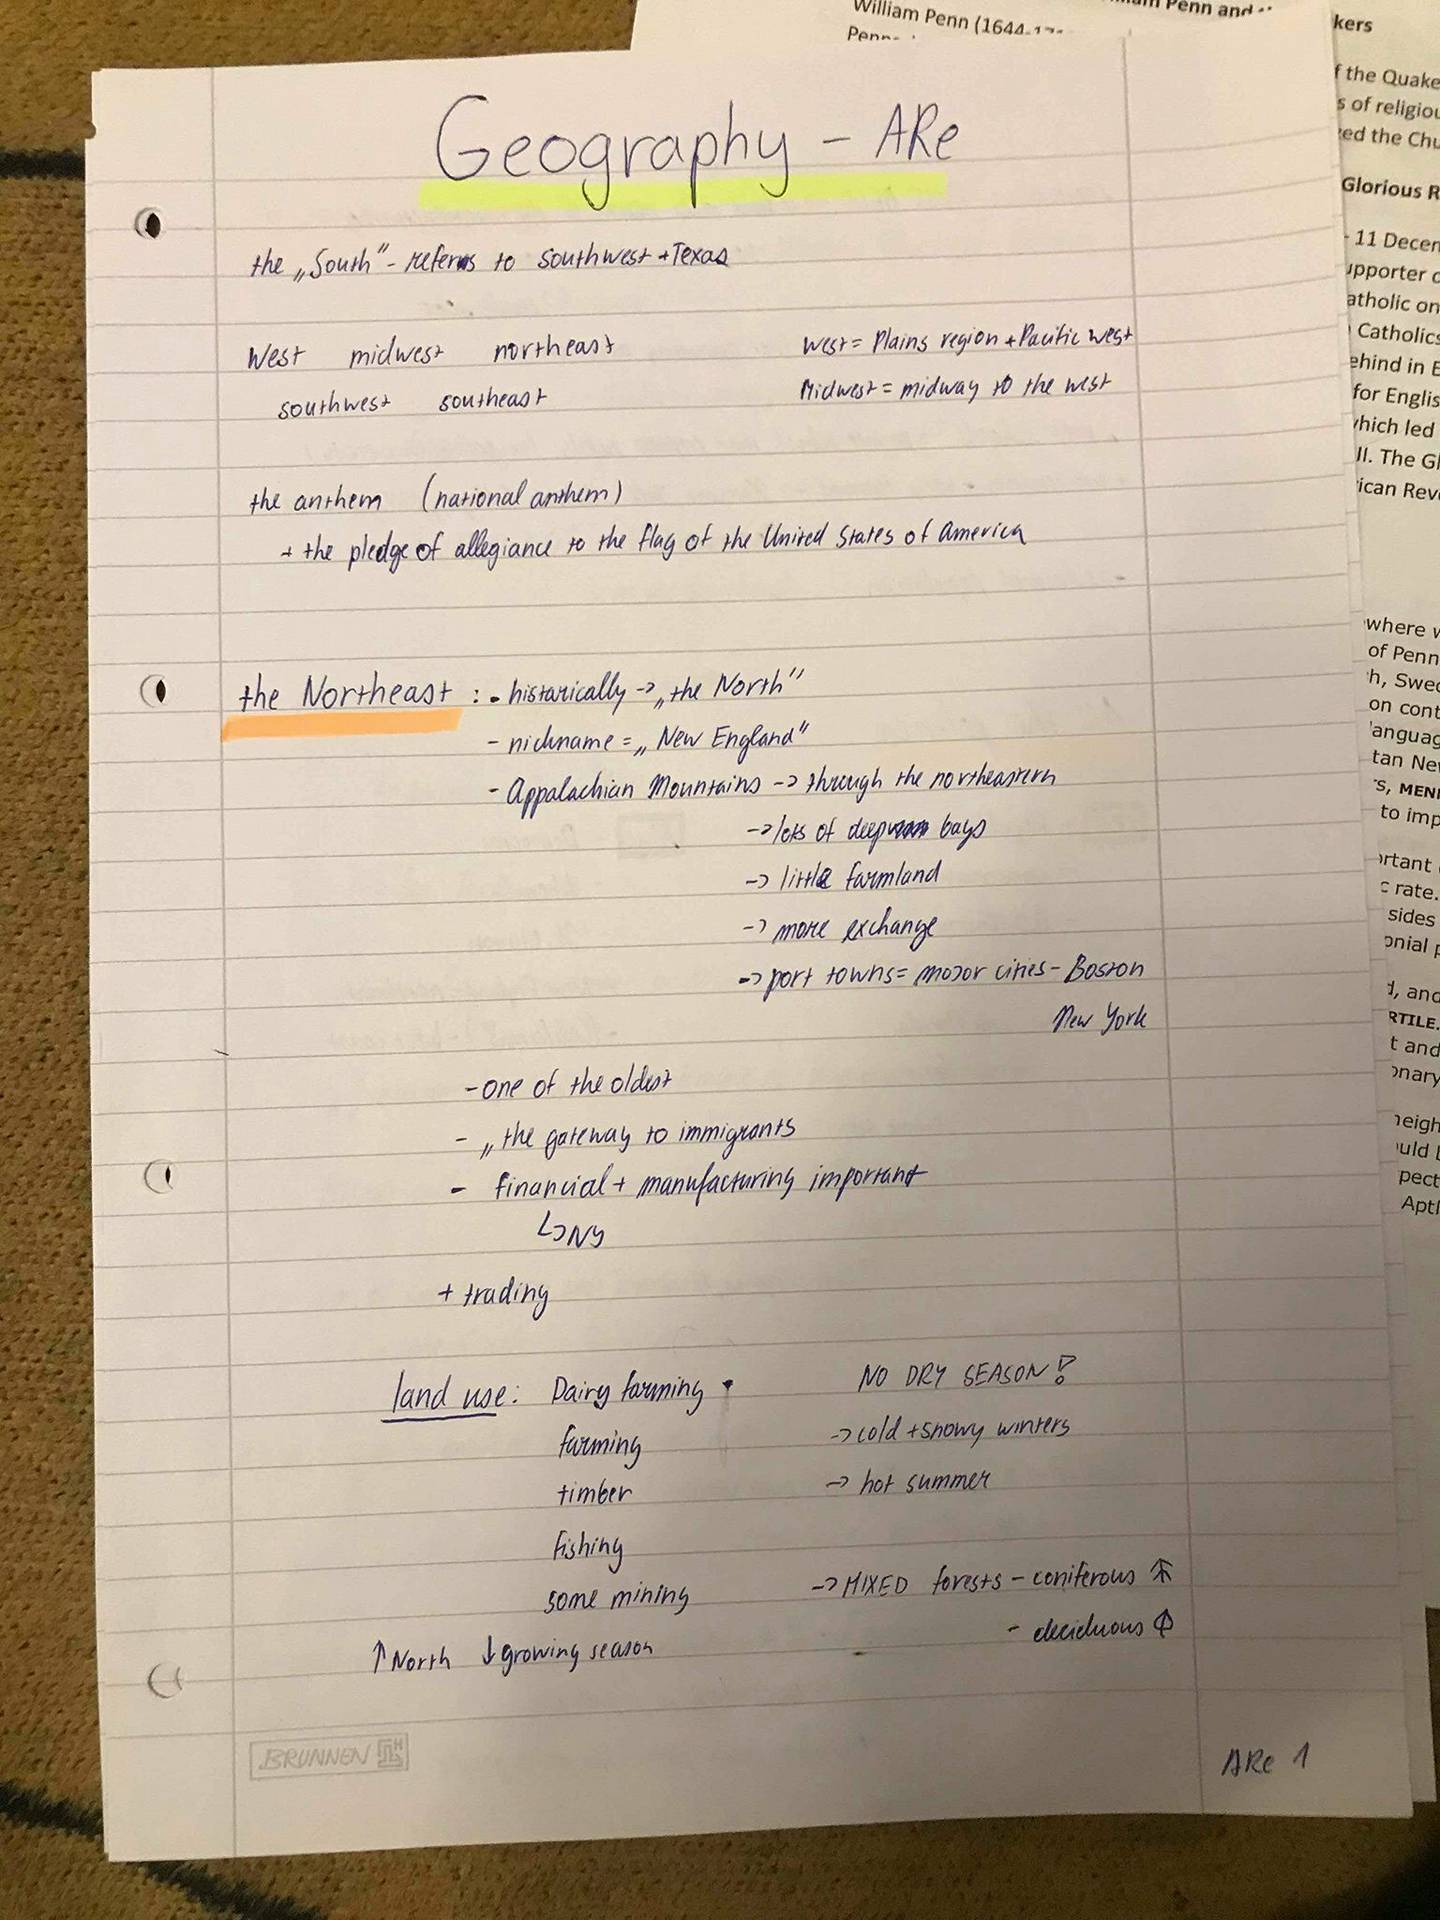 Geography - ARe
the „South" - refers to southwest + Texas
West midwest northeast
southwest southeast
West = Plains region + Pacific west
Midwest = midway to the west
the anthem (national anthem)
+ the pledge of allegiance to the flag of the United States of America
the Northeast : - historically -> „the North"
- nickname = „New England"
- Appalachian Mountains -> through the northeastern
-> lots of deep bays
-> little farmland
-> more exchange
-> port towns = major cities - Boston
New York
- one of the oldest
- „the gateway to immigrants
- financial + manufacturing important
↳ NY
+ trading
land use: Dairy farming
farming
timber
fishing
some mining
↑ North ↓ growing season
NO DRY SEASON!
-> cold + snowy winters
-> hot summer
-> MIXED forests - coniferous
- deciduous
BRUNNEN
ARe 1
William Penn (1644-
Penn and
kers
f the Quake
s of religiou
ed the Chu
Glorious R
- 11 Decem
upporter o
atholic on
Catholics
ehind in E
for Englis
which led
II. The Gl
ican Rev
where w
of Penn
h, Swed
on cont
anguag
tan Nev
s, MENN
to imp
ortant
c rate.
sides
onial p
d, and
RTILE.
t and
onary
neigh
uld b
pect
Aptl